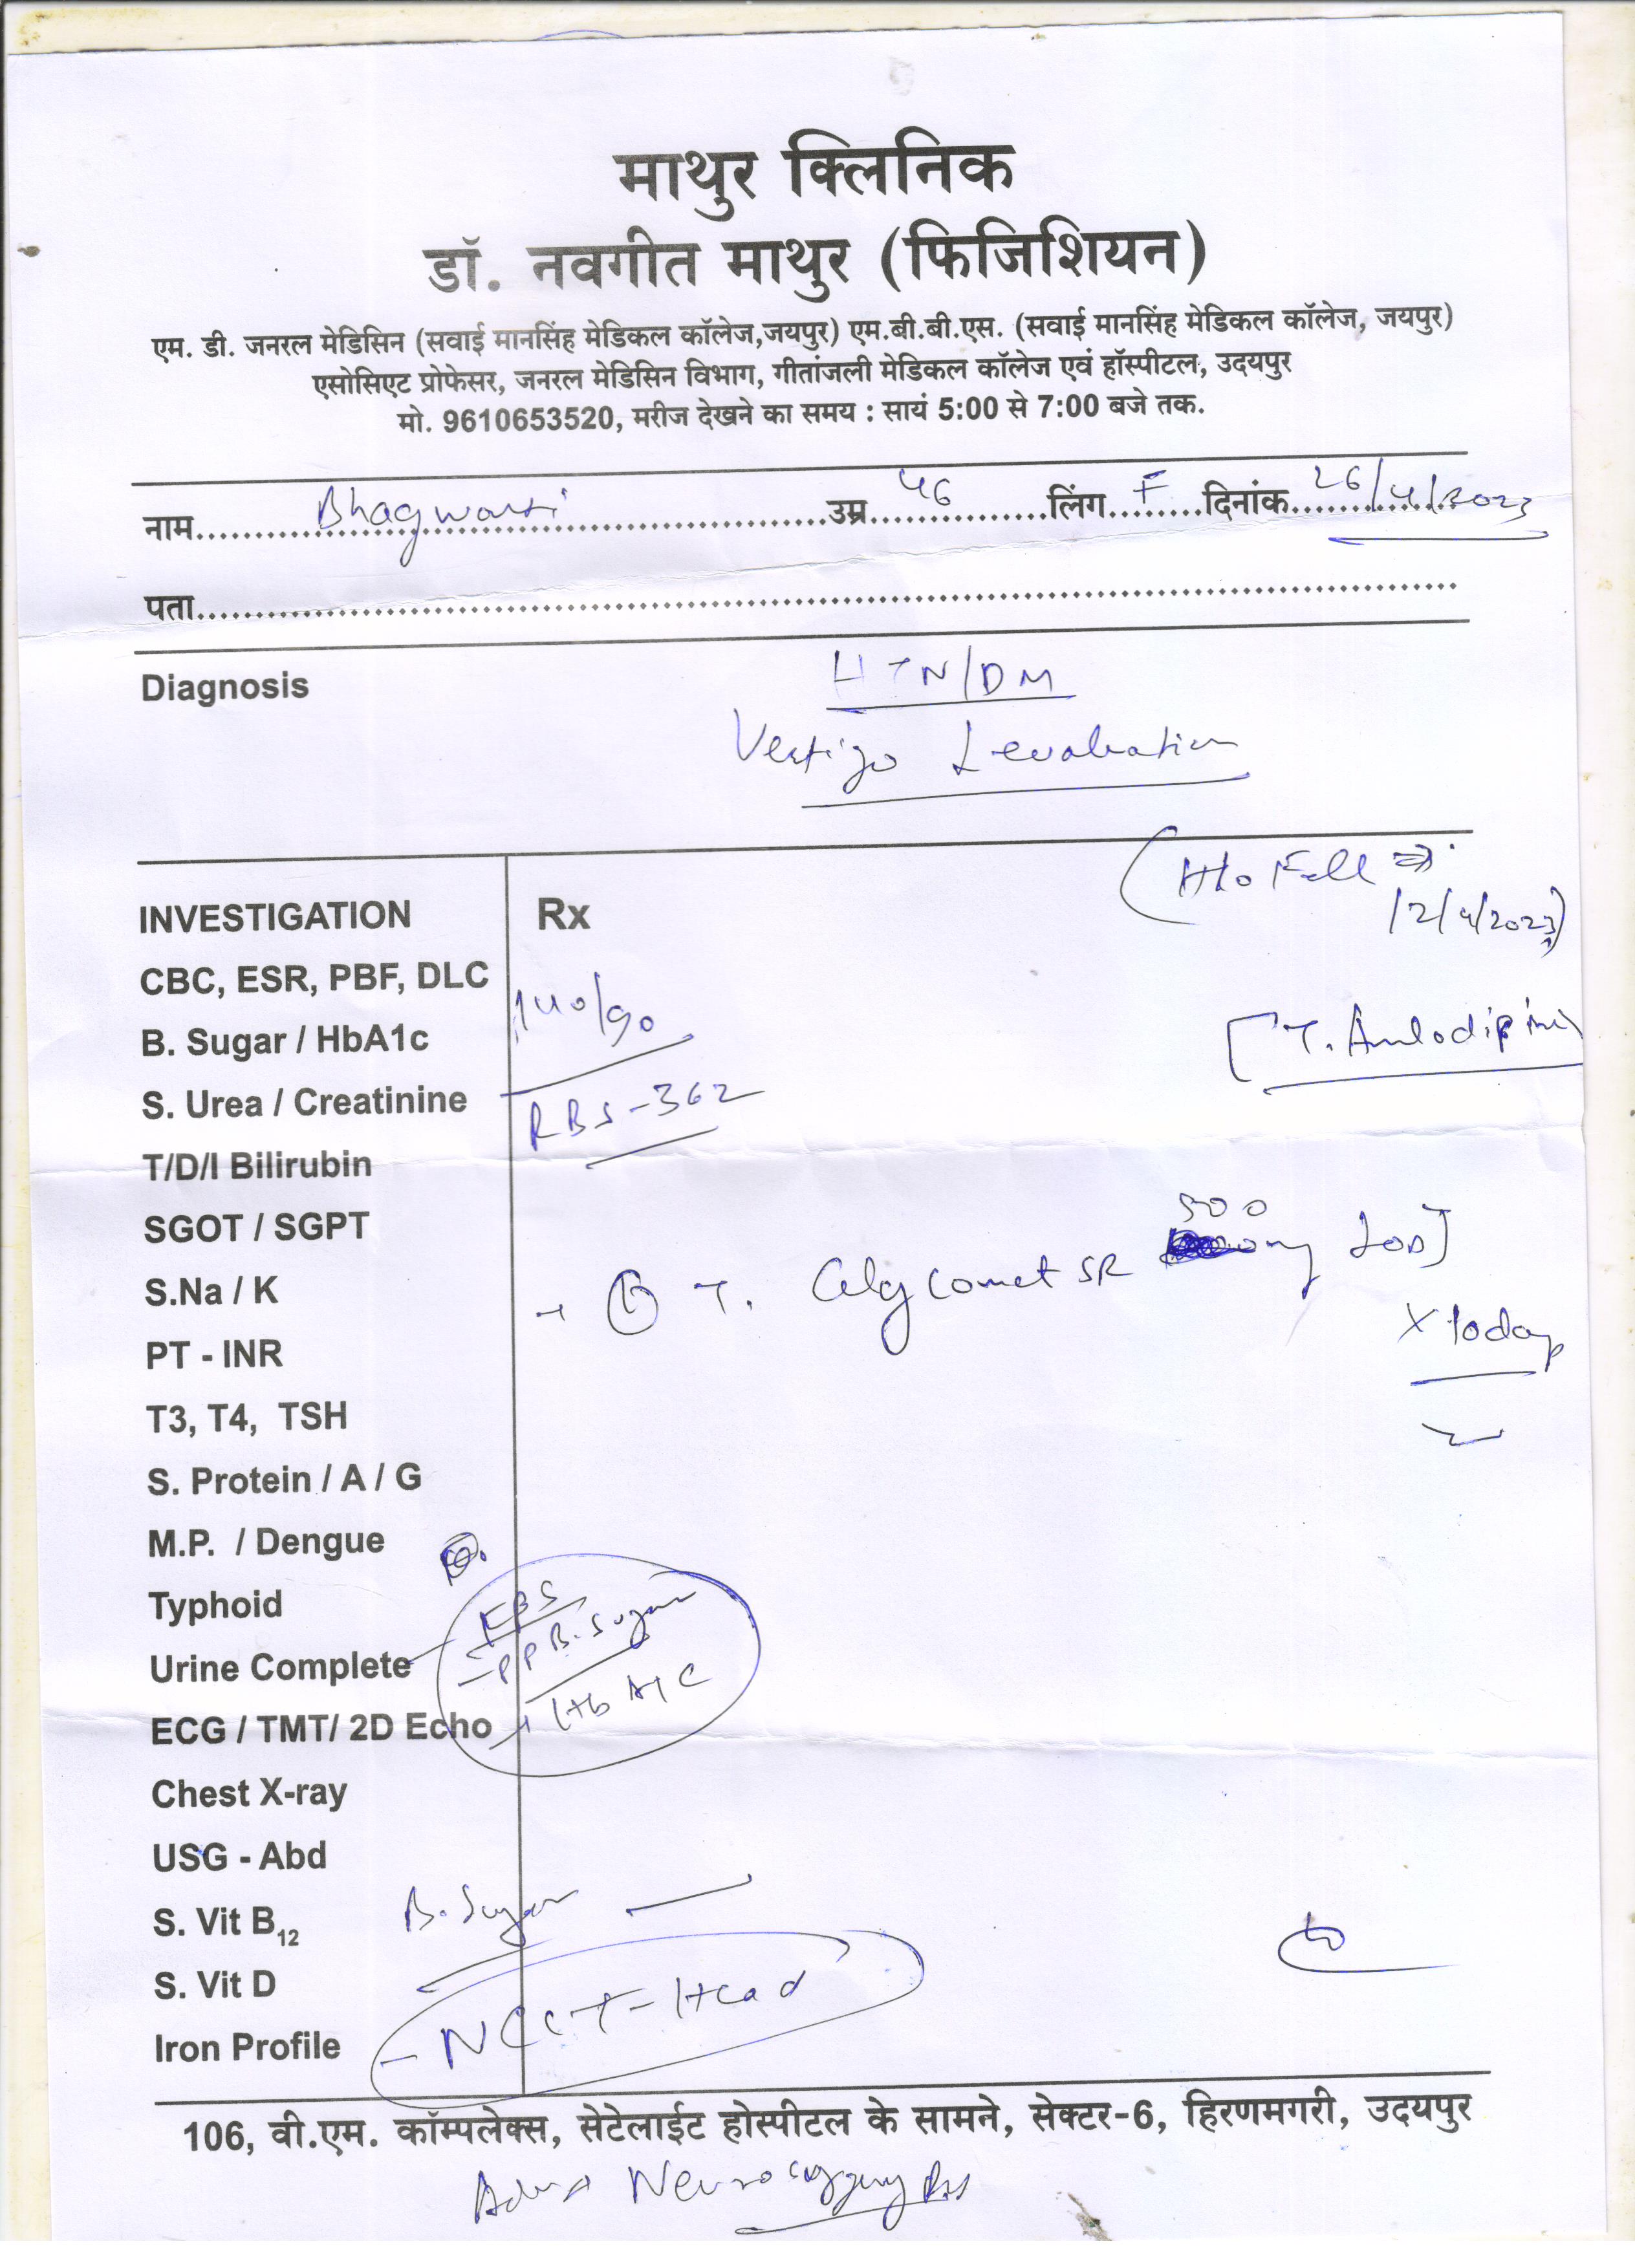 माथुर क्लिनिक
डॉ. नवगीत माथुर (फिजिशियन)
एम. डी. जनरल मेडिसिन (सवाई मानसिंह मेडिकल कॉलेज,जयपुर) एम.बी.बी.एस. (सवाई मानसिंह मेडिकल कॉलेज, जयपुर)
एसोसिएट प्रोफेसर, जनरल मेडिसिन विभाग, गीतांजली मेडिकल कॉलेज एवं हॉस्पीटल, उदयपुर
मो. 9610653520, मरीज देखने का समय : सायं 5:00 से 7:00 बजे तक.
नाम Bhagwati उम्र 46 लिंग F दिनांक 26/4/2023
पता
Diagnosis
HTN/DM
Vertigo evaluation
(H/o Fall
12/4/2023)
INVESTIGATION
Rx
CBC, ESR, PBF, DLC
140/90
[T. Amlodipine
B. Sugar / HbA1c
S. Urea / Creatinine
RBS-362
T/D/I Bilirubin
SGOT / SGPT
S.Na / K
T. Glycomet SR 500 mg 1OD]
x 10day
PT - INR
T3, T4, TSH
S. Protein / A / G
M.P. / Dengue
Typhoid
FBS
PP B. Sugar
Urine Complete
Hb A1C
ECG / TMT/ 2D Echo
Chest X-ray
USG - Abd
B. Sugar
S. Vit B12
S. Vit D
- NCCT - Head
Iron Profile
106, वी.एम. कॉम्पलेक्स, सेटेलाईट होस्पीटल के सामने, सेक्टर-6, हिरणमगरी, उदयपुर
Neurosurgery